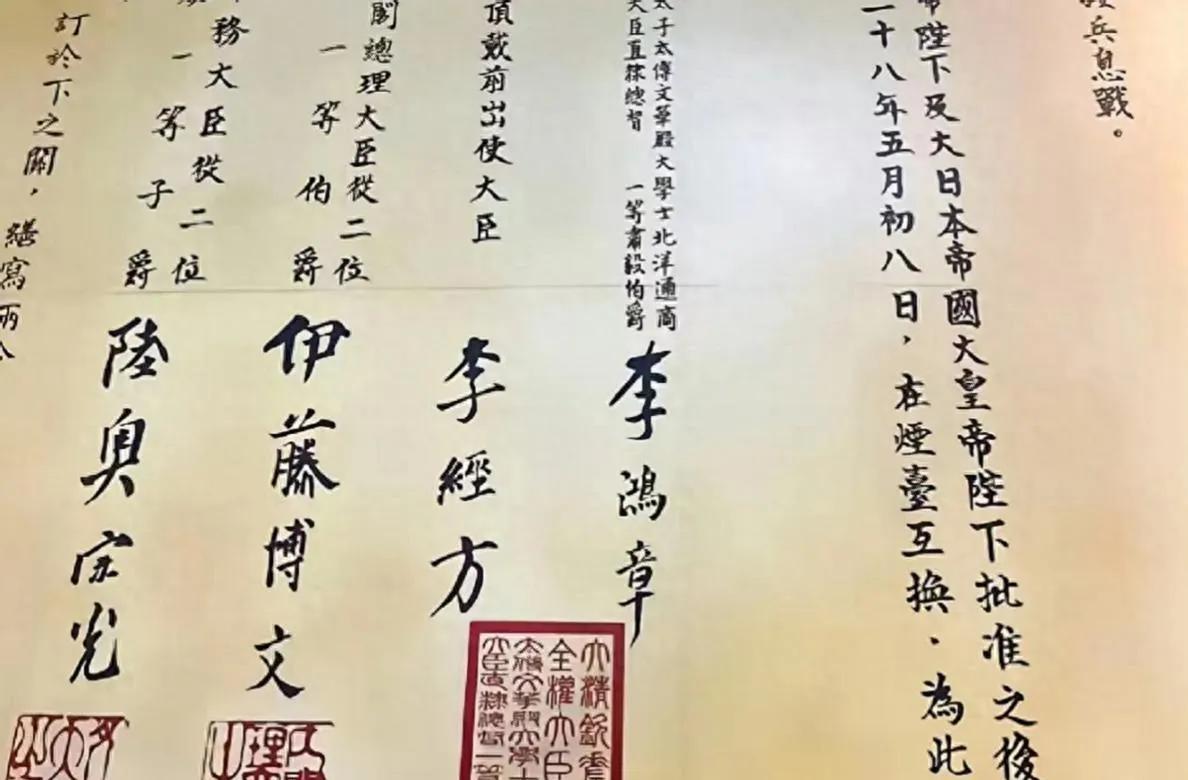 兵息戰。
帝陛下及大日本帝國大皇帝陛下批准之後
二十八年五月初八日，在煙臺互換．為此
太子太傅文華殿大學士北洋通商
大臣直隸總督 一等肅毅伯爵
李鴻章
頂戴前出使大臣
李經方
閣總理大臣從二位
一等伯爵
伊藤博文
務大臣從二位
一等子爵
陸奧宗光
訂於下之關，繕寫兩
大清欽差
全權大臣
太傅文華殿大學士
大臣直隸總督一等